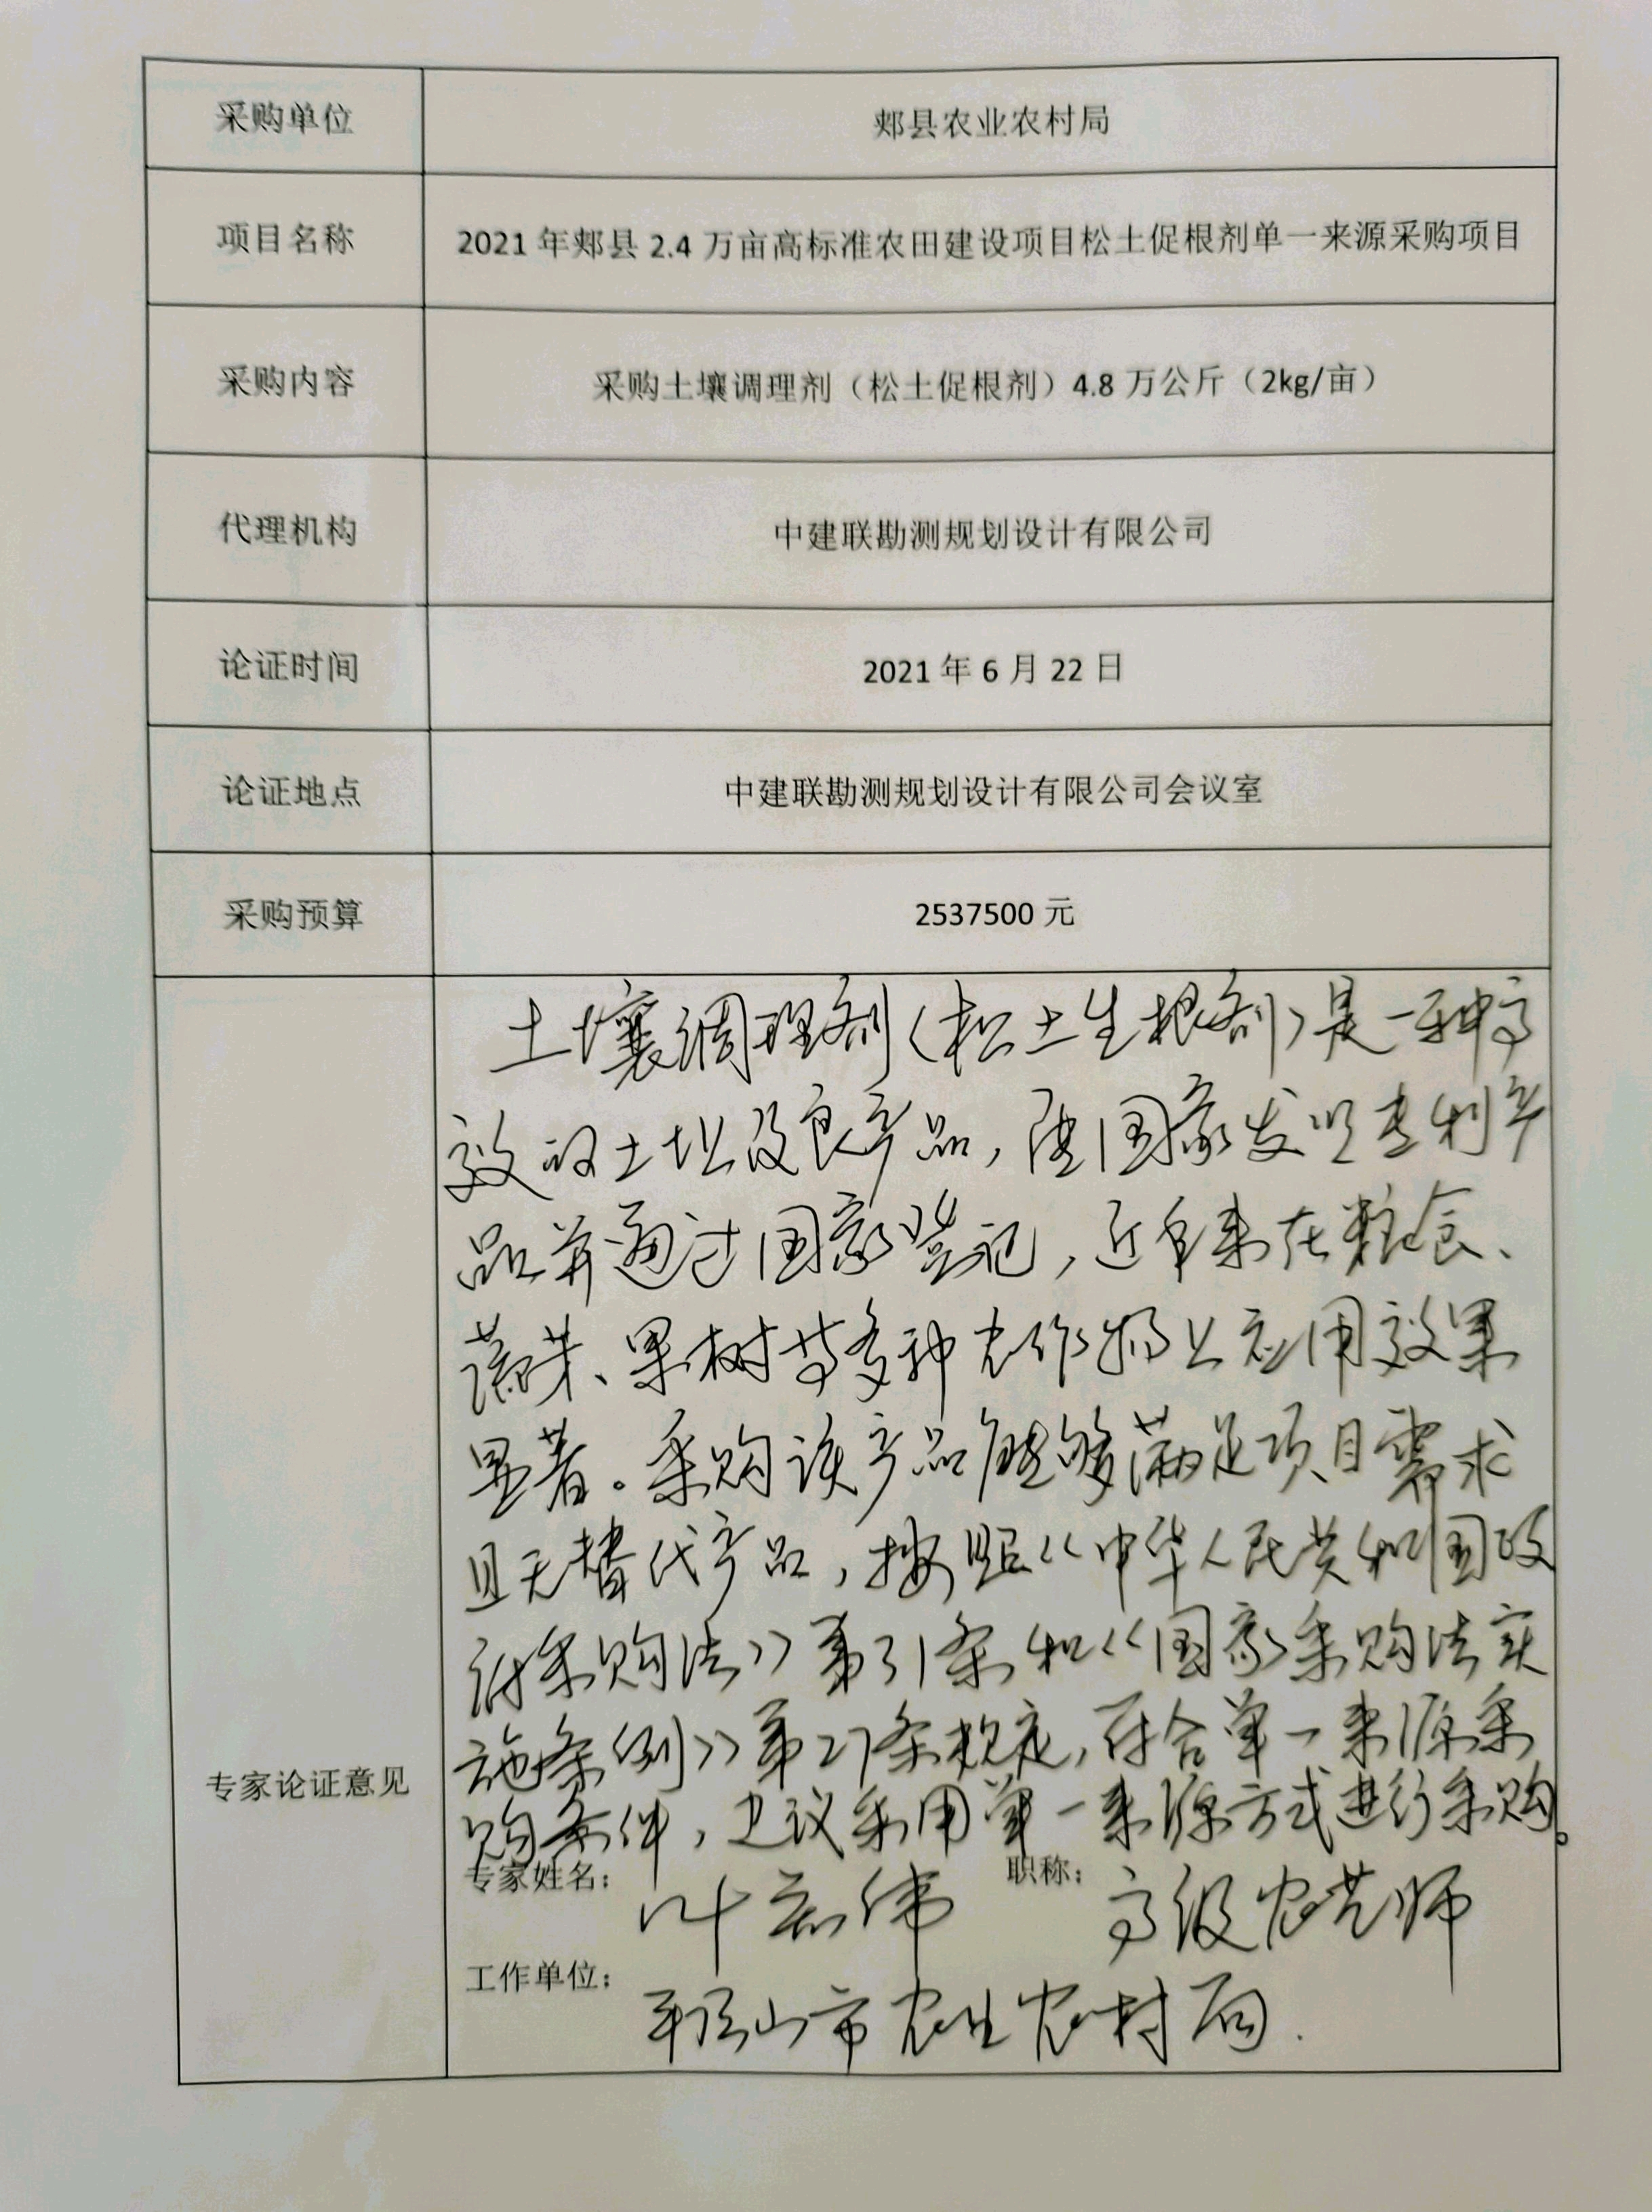 采购单位
郏县农业农村局
项目名称
2021 年郏县 2.4 万亩高标准农田建设项目松土促根剂单一来源采购项目
采购内容
采购土壤调理剂（松土促根剂）4.8 万公斤（2kg/亩）
代理机构
中建联勘测规划设计有限公司
论证时间
2021 年 6 月 22 日
论证地点
中建联勘测规划设计有限公司会议室
采购预算
2537500 元
专家论证意见
土壤调理剂（松土生根剂）是一种高
效的土壤改良产品，是国家发明专利产
品并通过国家登记，近年来在粮食、
蔬菜、果树等多种农作物上应用效果
显著。采购该产品能够满足项目需求
且无替代产品，按照《中华人民共和国政
府采购法》第31条和《国家采购法实
施条例》第27条规定，符合单一来源采
购条件，建议采用单一来源方式进行采购。
专家姓名：叶 伟 职称：高级农艺师
工作单位：平顶山市农业农村局.